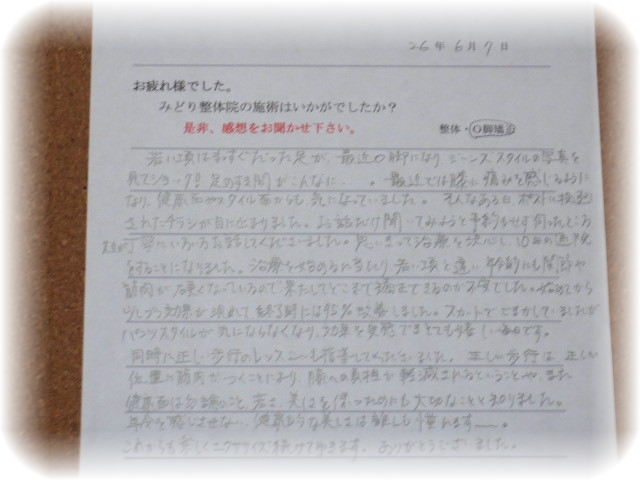 26年 6月 7日
お疲れ様でした。
みどり整体院の施術はいかがでしたか？
是非、感想をお聞かせ下さい。
整体・O脚矯正
若い頃はまっすぐだった足が、最近O脚になり ジーンズスタイルの写真を
見てショック! 足のすき間がこんなに・・・。最近では膝に痛みを感じるように
なり、健康面やスタイル面からも気になっていました。そんなある日、ポストに投函
されたチラシが目に止まりました。お話だけ聞いてみようと予約もせず伺ったところ
丁寧にいろいろお話してくださいました。思いきって治療を決心し、10回の通院
をすることになりました。治療を始めるに当たり 若い頃と違い、年齢的にも関節や
筋肉が硬くなっているので 果たしてどこまで矯正できるのか不安でした。始めてから
少しずつ効果が表れて 終了時には95%改善しました。スカートでごまかしていましたが
パンツスタイルが気にならなくなり、効果を実感できとても嬉しい毎日です。
同時に正しい歩行のレッスンも指導してくださいました。正しい歩行は、正しい
位置に筋肉がつくことにより、膝への負担が軽減されるということや、また
健康面は勿論のこと、若さ、美しさを保つためにも大切なことと知りました。
年令を感じさせない、健康的な美しさは誰しも憧れます〜。
これからも楽しくエクササイズ続けて行きます。ありがとうございました。